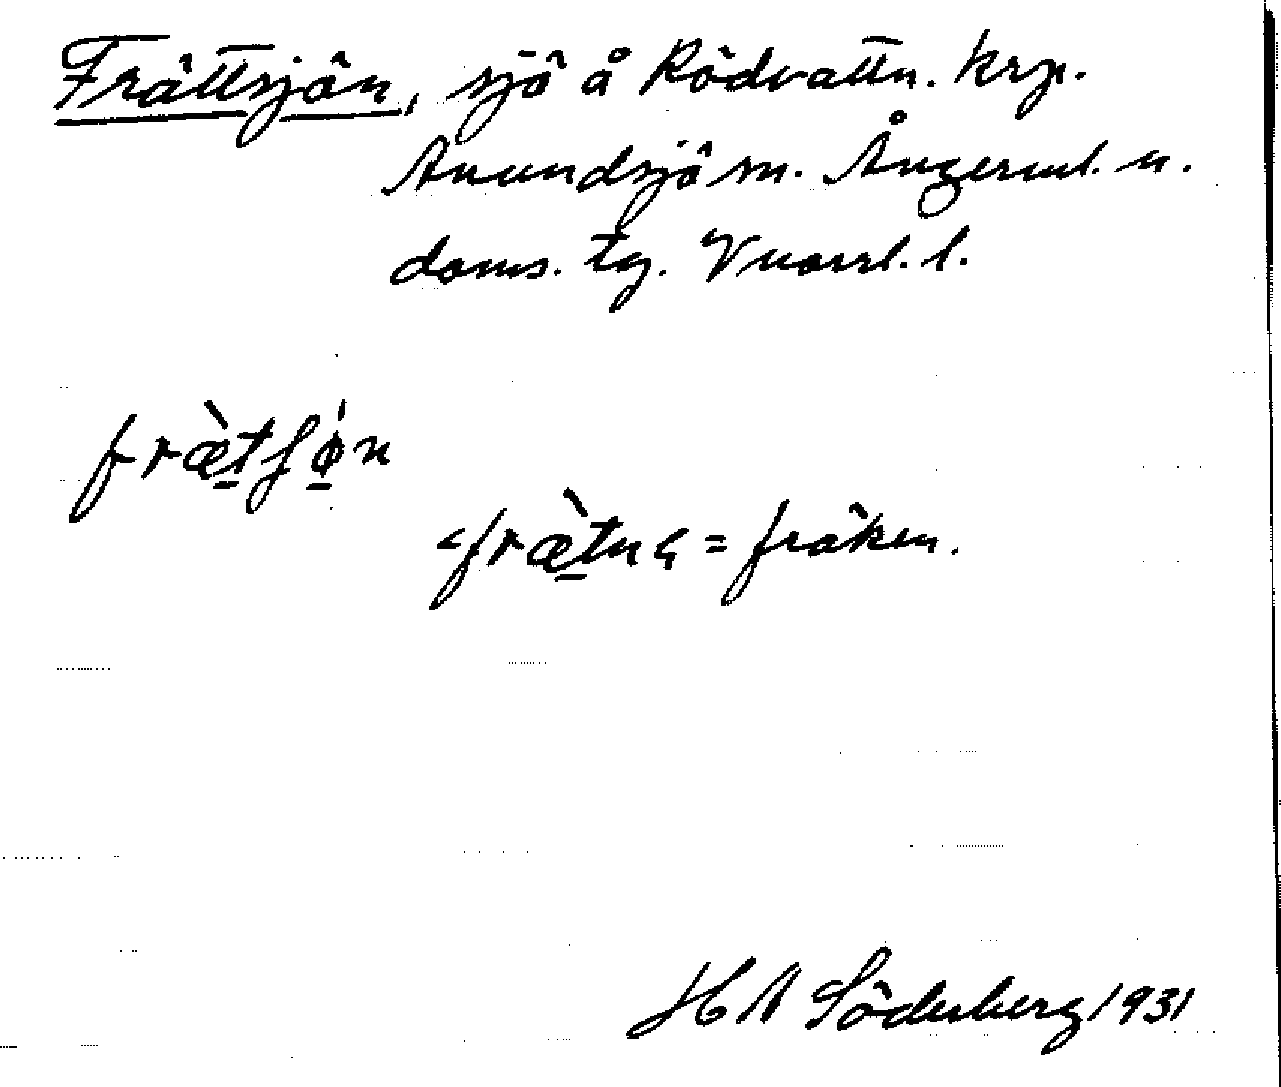 Frättsjön, sjö å Rödvattn. krp.
Anundsjö sn. Ångerml. n.
doms. tg. Vnorrl. l.
fræ̀tʃø̍n
<fræ̀tnς = fräken.
H A Söderberg 1931